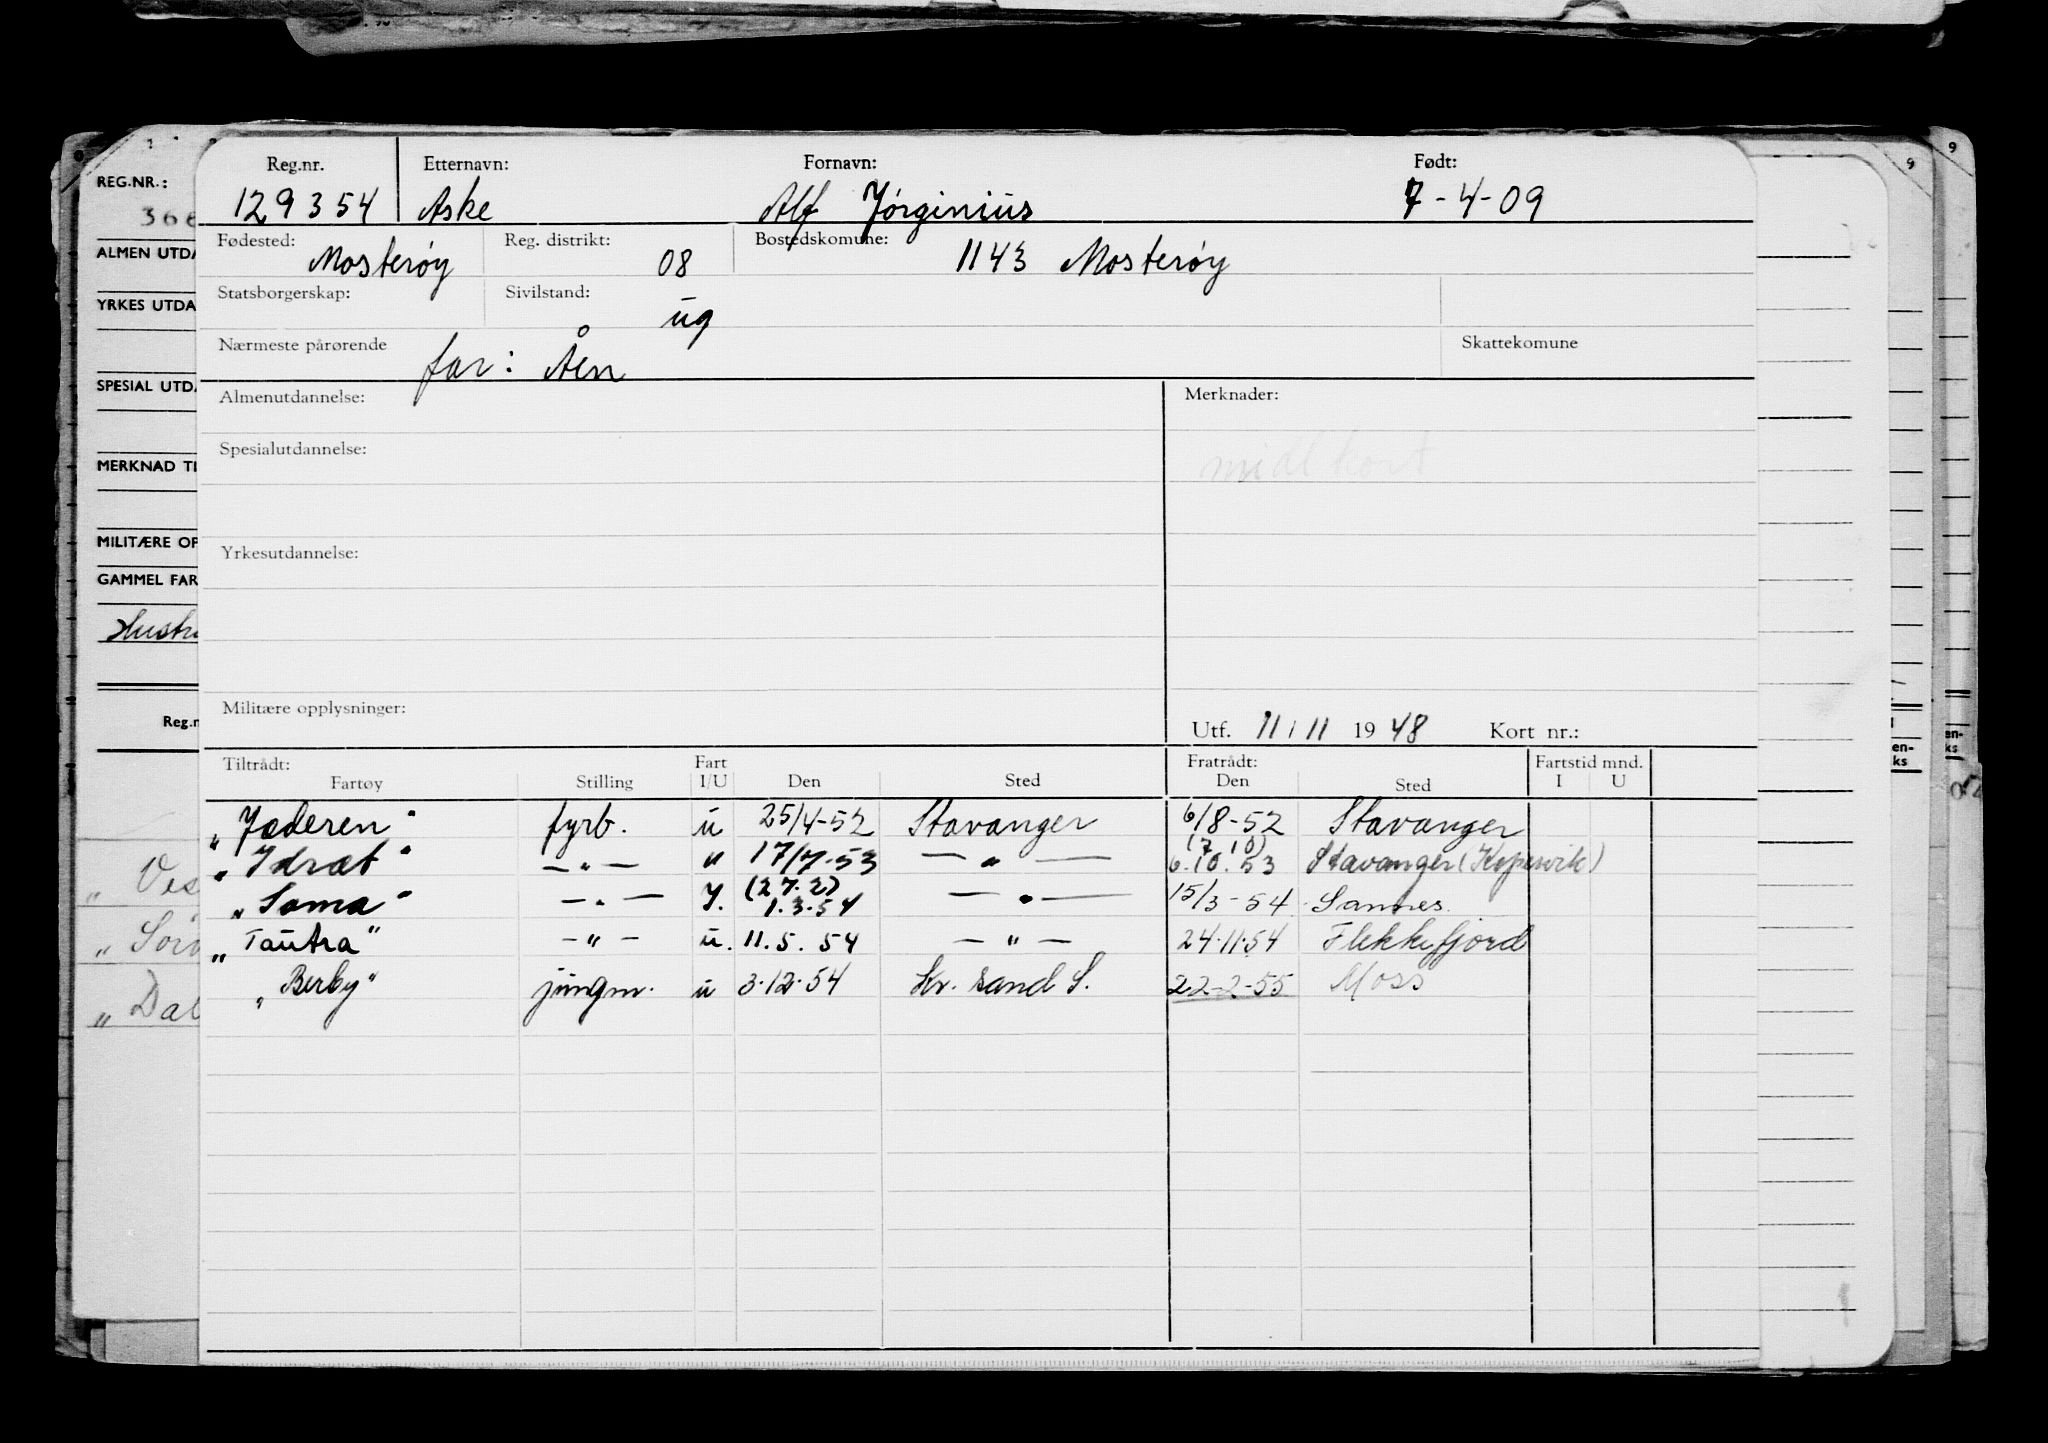 Reg.nr. Etternavn: Fornavn: Født:
129354 Aske Alf Jørginius 7-4-09
Fødested: Mosterøy Reg. distrikt: 08 Bostedskomune: 1143 Mosterøy
Statsborgerskap: Sivilstand: ug
Nærmeste pårørende far: Åen Skattekomune
Almenutdannelse: Merknader:
Spesialutdannelse: midl kort
Yrkesutdannelse:
Militære opplysninger: Utf. 11/11 1948 Kort nr.:
Tiltrådt: Fart Fratrådt: Fartstid mnd.
Fartøy Stilling I/U Den Sted Den Sted I U
"Jæderen" fyrb. u 25/4-52 Stavanger 6/8-52 Stavanger
(7 10)
"Idræt" -"- " 17/7-53 -"- 6.10.53 Stavanger (Kopervik)
(27.2)
"Soma" -"- I. 1.3.54 -"- 15/3-54 Sannes.
"Tautra" -"- u. 11.5.54 -"- 24.11.54 Flekkefjord
"Berby" jungm. u 3.12.54 Kr. sand S. 22-2-55 Moss
REG.NR.:
366
ALMEN UTDA
YRKES UTDA
SPESIAL UTDA
MERKNAD TI
MILITÆRE OP
GAMMEL FAR
Hustr
Reg.n
"Ves
"Sør
"Dal
9
9
en-
ks
en-
ks